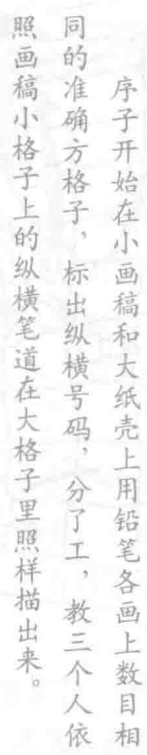 序子开始在小画稿和大纸壳上用铅笔各画上数目相
同的准确方格子，标出纵横号码，分了工，教三个人依
照画稿小格子上的纵横笔道在大格子里照样描出来。